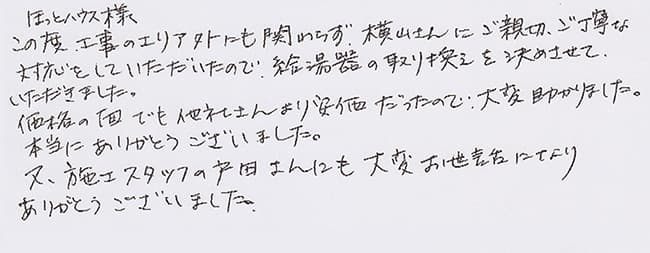 ほっとハウス様
この度、工事のエリア外にも関わらず、横山さんにご親切、ご丁寧な
対応をしていただいたので、給湯器の取り換えを決めさせて
いただきました。
価格の面でも他社さんより安価だったので、大変助かりました。
本当にありがとうございました。
又、施工スタッフの戸田さんにも大変お世話になり
ありがとうございました。